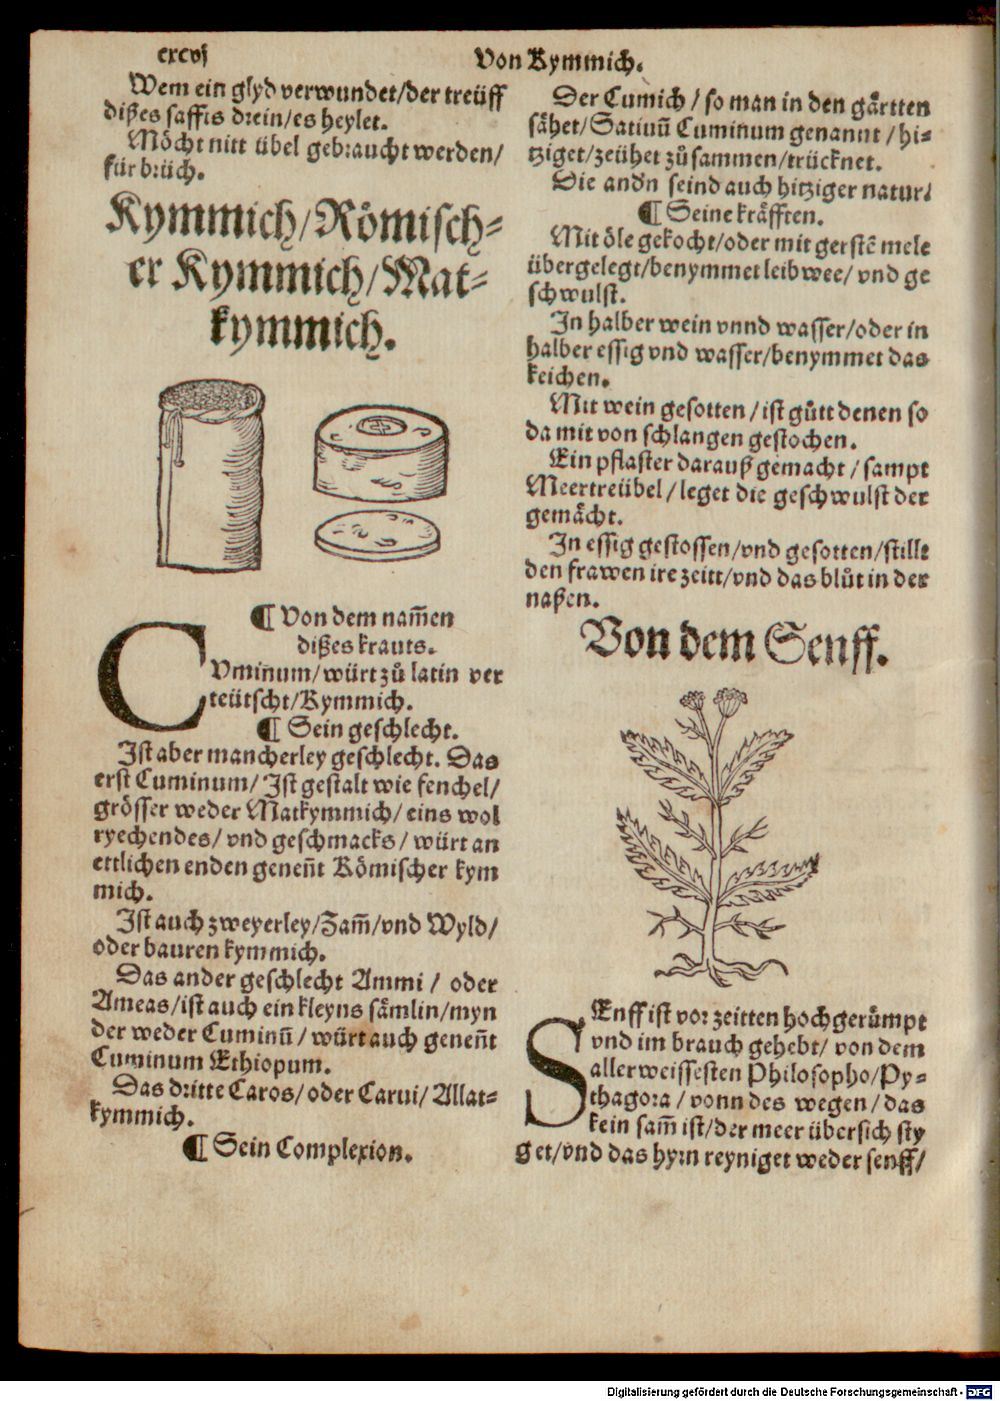 cxcvj
Von Kymmich.
Wem ein glyd verwundet/der treüff
dißes saffts drein/es heylet.
Möcht nitt übel gebraucht werden/
für brüch.
Kymmich/Römisch-
er Kymmich/Mat-
kymmich.
¶ Von dem nam̃en
dißes krauts.
CVminum/würt zů latin ver
teütscht/Kymmich.
¶ Sein geschlecht.
Ist aber mancherley geschlecht. Das
erst Cuminum/ Ist gestalt wie fenchel/
grösser weder Matkymmich/ eins wol
ryechendes/ vnd geschmacks/ würt an
ettlichen enden genen̄t Römischer kym
mich.
Ist auch zweyerley/Zam̃/vnd Wyld/
oder bauren kymmich.
Das ander geschlecht Ammi / oder
Ameas/ist auch ein kleyns sämlin/myn
der weder Cuminū/ würt auch genen̄t
Cuminum Ethiopum.
Das dritte Caros/ oder Carui/ Mat-
kymmich.
¶ Sein Complexion.
Der Cumich / so man in den gårtten
såhet/Sativū Cuminum genannt / hi-
tziget/zeühet zůsammen/trücknet.
Die andn seind auch hitziger natur.
¶ Seine kräfften.
Mit öle gekocht/oder mit gerstē mele
übergelegt/benymmet leibwee/ vnd ge
schwulst.
In halber wein vnnd wasser/oder in
halber essig vnd wasser/benymmet das
keichen.
Mit wein gesotten / ist gůtt denen so
da mit von schlangen gestochen.
Ein pflaster darauß gemacht / sampt
Meertreübel / leget die geschwulst der
gemächt.
In essig gestossen/vnd gesotten/stillt
den frawen ire zeitt/vnd das blůt in der
naßen.
Von dem Senff.
SEnff ist vor zeitten hochgerümpt
vnd im brauch gehebt/ von dem
aller weissesten Philosopho/Py-
thagora / vonn des wegen / das
kein sam̃ ist/der meer übersich sty
get/vnd das hyrn reyniget weder senff/
Digitalisierung gefördert durch die Deutsche Forschungsgemeinschaft - DFG